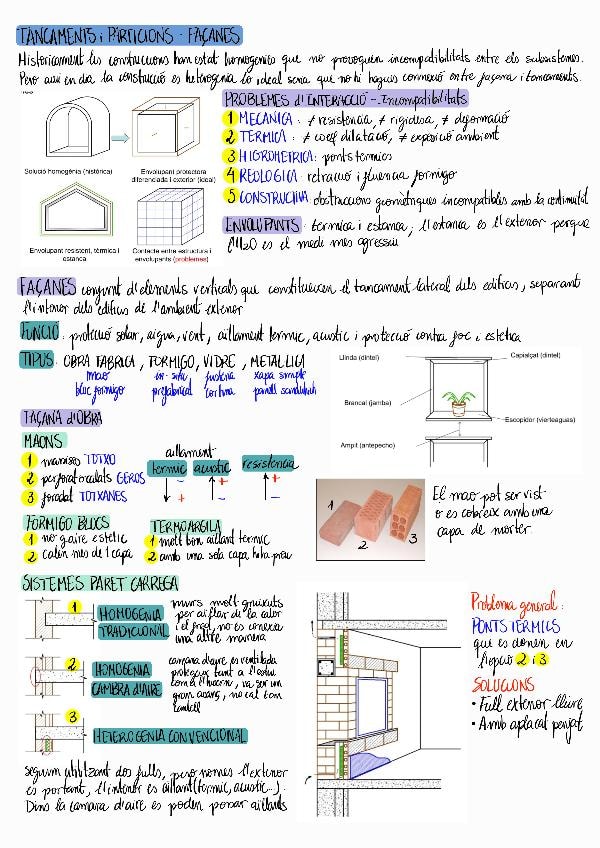 TANCAMENTS i PARTICIONS · FAÇANES
Històricament les construccions han estat homogenies que no provoquen incompatibilitats entre els subsistemes.
Pero avui en dia la construcció es heterogenia lo ideal seria que no hi hagues connexió entre façana i tancaments.
Solució homogènia (històrica)
Envolupant protectora
diferenciada i exterior (ideal)
Envolupant resistent, tèrmica i
estanca
Contacte entre estructura i
envolupants (problemes)
PROBLEMES d'INTERACCIÓ - Incompatibilitats
1 MECANICA : ≠ resistencia, ≠ rigidesa, ≠ deformació
2 TERMICA : ≠ coef dilatació, ≠ exposició ambient
3 HIGROMETRICA : ponts termics
4 REOLOGICA : retracció i fluencia formigo
5 CONSTRUCTIVA obstruccions geomètriques incompatibles amb la continuitat
ENVOLUPANTS : termica i estanca, l'estanca es l'exterior perque
l'H2O es el medi mes agressiu
FAÇANES conjunt d'elements verticals que constitueixen el tancament lateral dels edificis, separant
l'interior dels edificis de l'ambient exterior
FUNCIO : protecció solar, aigua, vent, aillament termic, acustic i protecció contra foc i estetica
TIPUS : OBRA FABRICA, FORMIGO, VIDRE, METALLICA
mao in-situ fusteria xapa simple
bloc formigo prefabricat cortina panell sandwich
Llinda (dintel)
Capialçat (dintel)
Brancal (jamba)
Escopidor (vierteaguas)
Ampit (antepecho)
FAÇANA d'OBRA
MAONS
1 massisos TOTXO
2 perforat calats GEROS
3 foradat TOTXANES
aillament
termic acustic resistencia
- + +
+ - -
1 2 3
El mao pot ser vist
o es cobreix amb una
capa de morter
FORMIGO BLOCS
1 no gaire estetic
2 calen mes de 1 capa
TERMOARGILA
1 molt bon aillant termic
2 amb una sola capa hi ha prou
SISTEMES PARET CARREGA
1 HOMOGENIA
TRADICIONAL
murs molt gruixuts
per aillar de la calor
i el fred, no es coneixia
una altre manera
2 HOMOGENIA
CAMBRA D'AIRE
camara d'aire es ventilada
protegeix tant a l'estiu
com a l'hivern, va ser un
gran avanç, no cal tan
3 HETEROGENIA CONVENCIONAL
seguim utilitzant dos fulls, pero nomes l'exterior
es portant, l'interior es aillant (termic, acustic...).
Dins la camara d'aire es poden posar aillants
Problema general :
PONTS TERMICS
que es donen en
l'opció 2 i 3
SOLUCIONS
• Full exterior lliure
• Amb aplacat penjat